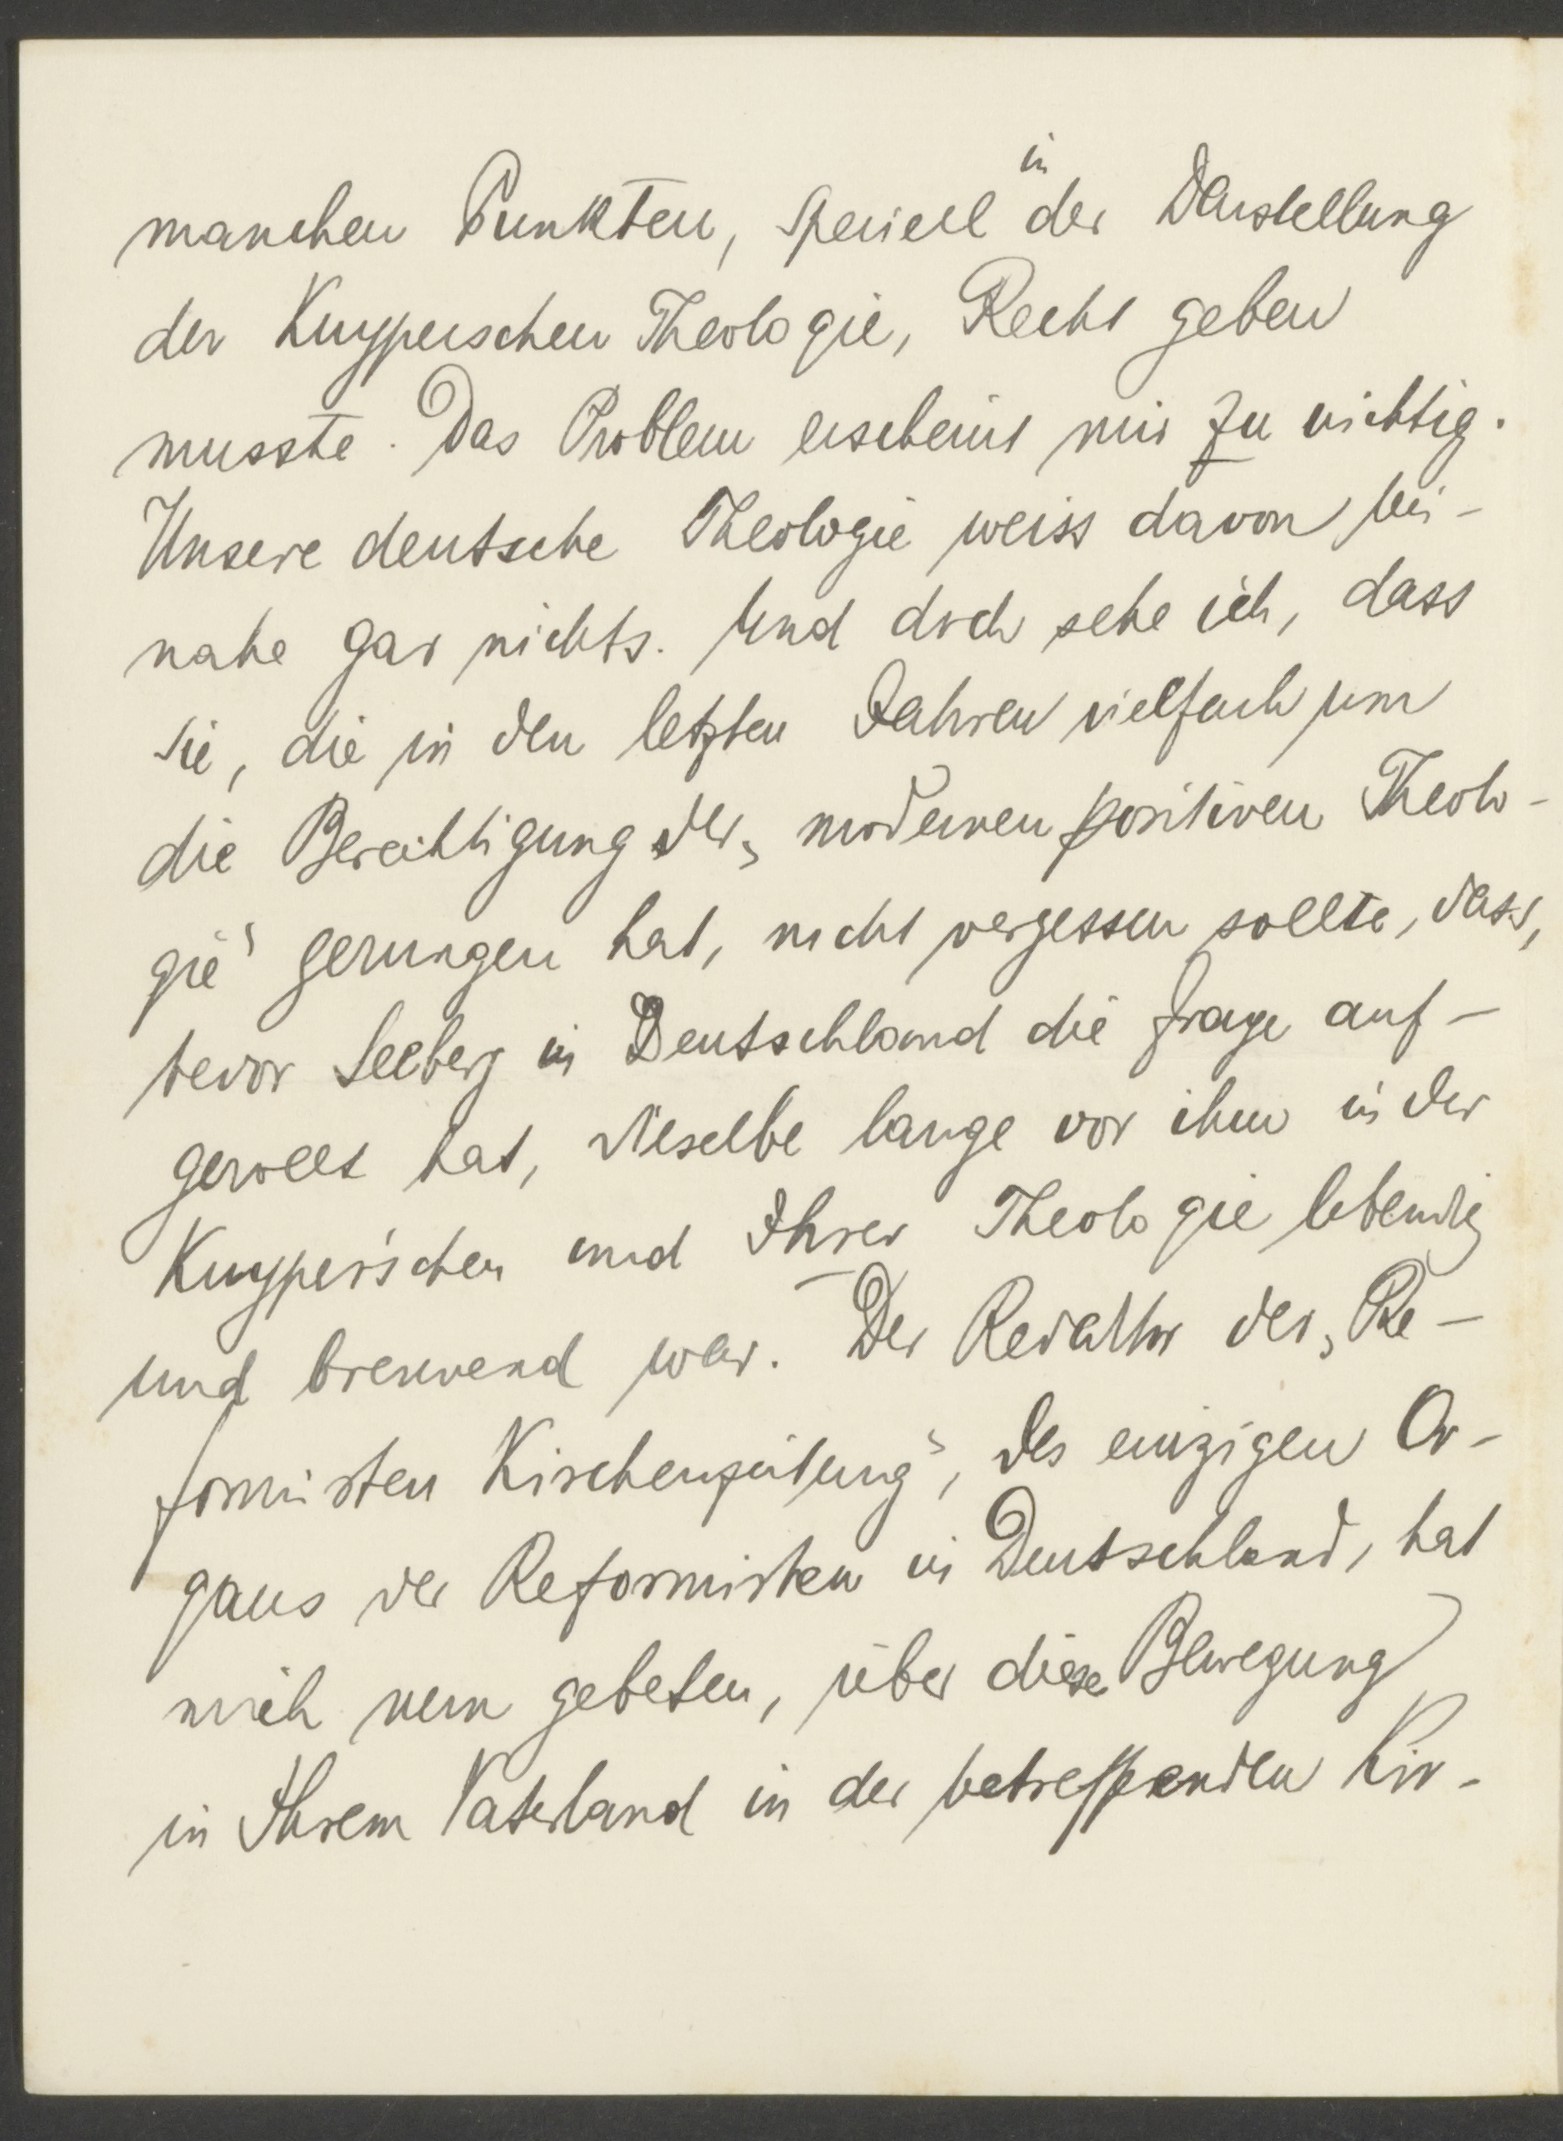 manchen Punkten, speciell in der Darstellung
der Kuyperschen Theologie, Recht geben
musste. Das Problem erscheint mir zu wichtig.
Unsere deutsche Theologie weiss davon bei-
nahe gar nichts. Und doch sehe ich, dass
sie, die in den letzten Jahren vielfach um
die Berechtigung der „modernen positiven Theolo-
gie" gerungen hat, nicht vergessen sollte, dass,
bevor Seeberg in Deutschland die Frage auf-
gerollt hat, dieselbe lange vor ihm in der
Kuyper'schen und Ihrer Theologie lebendig
und brennend war. Der Redaktor der „Re-
formirten Kirchenzeitung", des einzigen Or-
gans der Reformirten in Deutschland, hat
mich nun gebeten, über diese Bewegung
in Ihrem Vaterland in der betreffenden Kir-